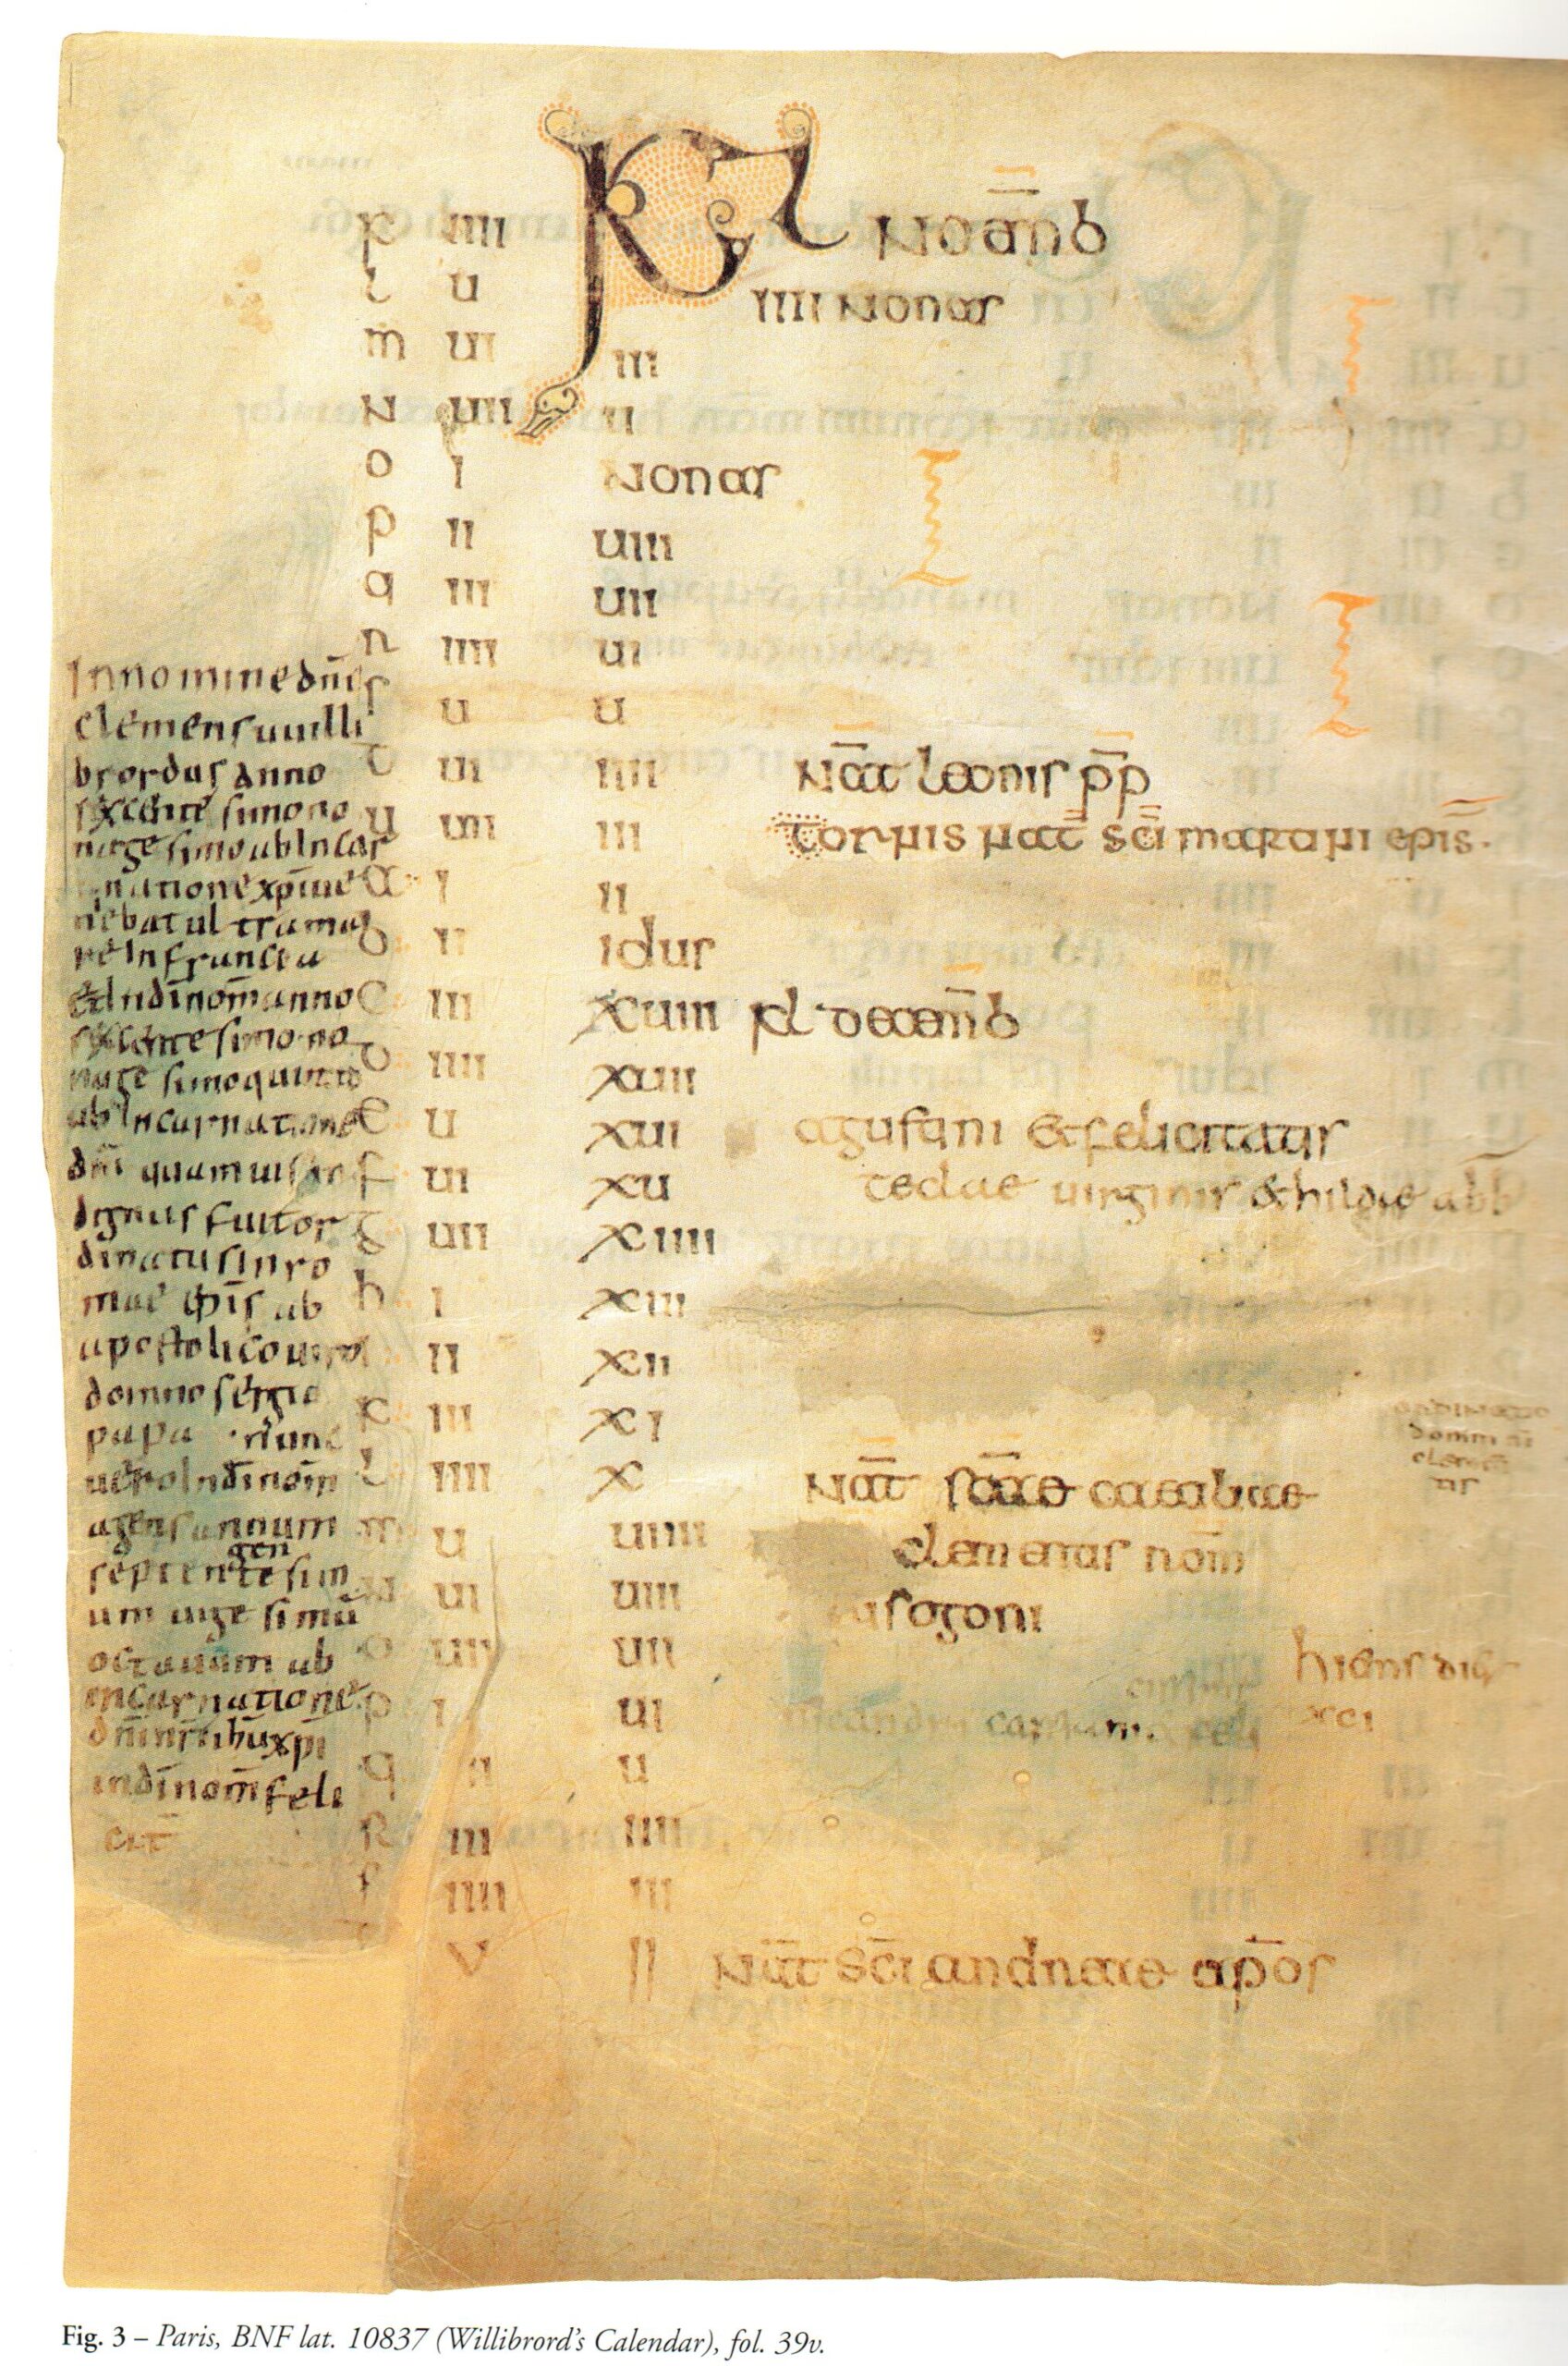 Kl Noemb
k iiii
l u iiii Nonas
m ui iii
N uii ii
o i Nonas
p ii uiii
q iii uii
r iiii ui
s u u
t ui iiii Nat leonis pp
u uii iii Toronis nat sci martini epis.
a i ii
b ii idus
c iii xuiii kl decemb
d iiii xuii
e u xui agustini et felicitatis
f ui xu teclae uirginis et hildae abb
g uii xiiii
h i xiii
i ii xii
k iii xi
l iiii x Nat scae caeciliae
m u uiiii clementis rom
n ui uiii
o uii uii hiems dies
p i ui xci
q ii u
R iii iiii
s iiii iii
t v ii Nat sci andreae apos
In nomine dni
clemens uuilli
brordus anno
sexcentesimo no
nagesimo ab incar
natione xpi ueni
ebat ultra ma
re in francia
et in di nom anno
sexcentesimo no
nagesimo quinto
ab incarnatione
dni quamuis in
dignus fuit or
dinatus in ro
mae epis ab
apostolico uiro
domno sergio
papa · nunc
uero in di nom
agens annum
septen gen tesim
um uigesimu
octauum ab
incarnatione
dni nri ihu xpi
in di nom feli
cit
ordinatio
domni ni
clemen
tis
Fig. 3 – Paris, BNF lat. 10837 (Willibrord's Calendar), fol. 39v.